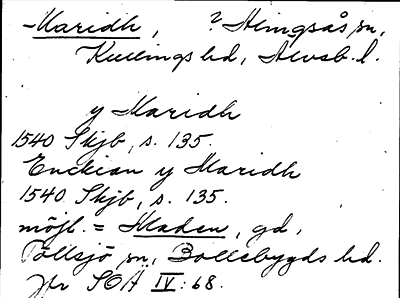 -Maridh, ? Alingsås sn,
Kullings hd, Älvsb. l.
y Maridh
1540 Skjb, s. 135.
Enckian y Maridh
1540 Skjb, s. 135.
möjl. = Maden, gd,
Töllsjö sn, Bollebygds hd.
Jfr SOÄ IV: 68.